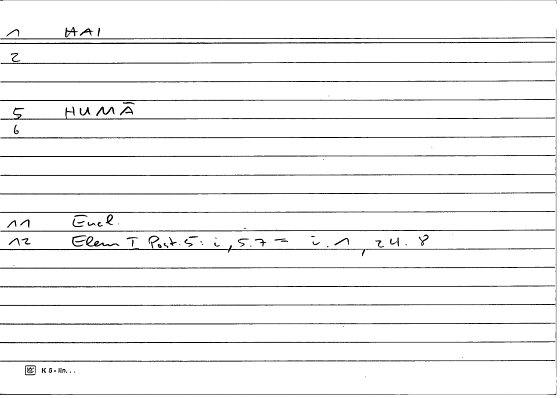 1 HAI
2
5 HUMĀ
6
11 Eucl.
12 Elem I Post. 5: i, 5.7 = i.1, 24.8
K 6 - lin...